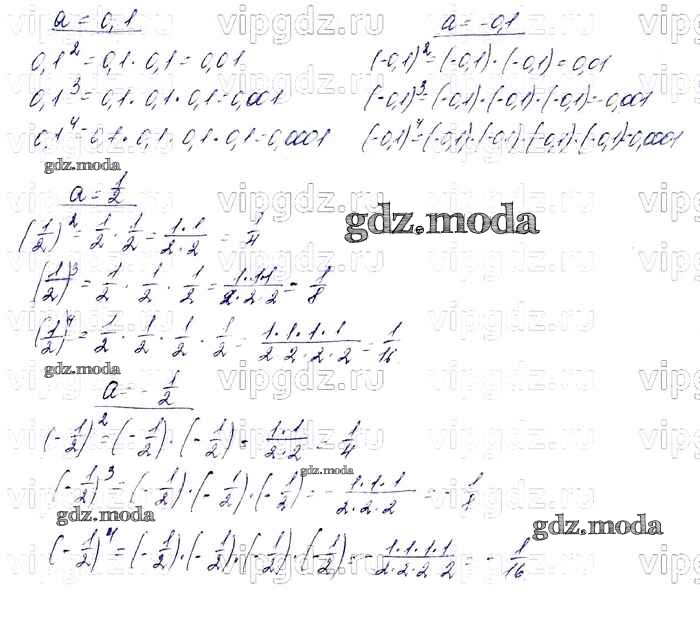 a = 0,1
0,1² = 0,1 · 0,1 = 0,01
0,1³ = 0,1 · 0,1 · 0,1 = 0,001
0,1⁴ = 0,1 · 0,1 · 0,1 · 0,1 = 0,0001
a = -0,1
(-0,1)² = (-0,1) · (-0,1) = 0,01
(-0,1)³ = (-0,1) · (-0,1) · (-0,1) = -0,001
(-0,1)⁴ = (-0,1) · (-0,1) · (-0,1) · (-0,1) = 0,0001
gdz.moda
a = 1/2
(1/2)² = 1/2 · 1/2 = 1·1/2·2 = 1/4
gdz.moda
(1/2)³ = 1/2 · 1/2 · 1/2 = 1·1·1/2·2·2 = 1/8
(1/2)⁴ = 1/2 · 1/2 · 1/2 · 1/2 = 1·1·1·1/2·2·2·2 = 1/16
gdz.moda
a = -1/2
(-1/2)² = (-1/2) · (-1/2) = 1·1/2·2 = 1/4
gdz.moda
(-1/2)³ = (-1/2) · (-1/2) · (-1/2) = -1·1·1/2·2·2 = -1/8
gdz.moda
gdz.moda
(-1/2)⁴ = (-1/2) · (-1/2) · (-1/2) · (-1/2) = -1·1·1·1/2·2·2·2 = -1/16
vipgdz.ru